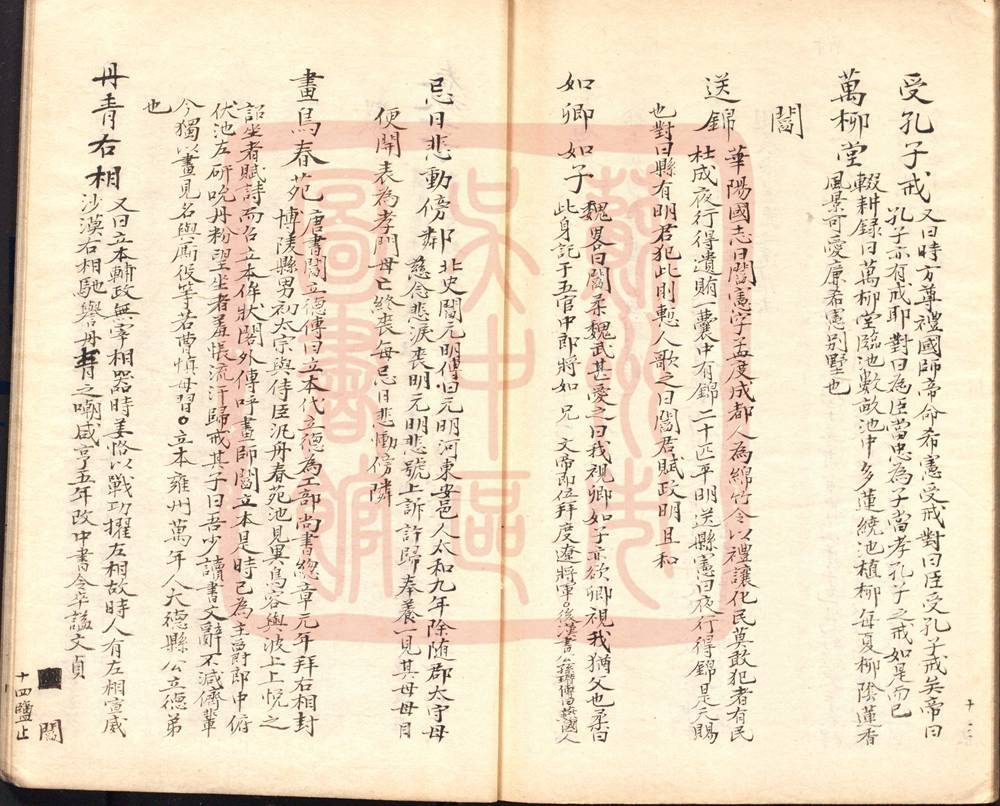 受孔子戒 又曰時方尊禮國師帝命希憲受戒對曰臣受孔子戒矣帝曰
孔子亦有戒耶對曰為臣當忠為子當孝孔子之戒如是而已
萬柳堂 輟耕錄曰萬柳堂臨池數畝池中多蓮繞池植柳每夏柳陰蓮香
風景可愛廉希憲別墅也
閻
送錦 華陽國志曰閻憲字孟度成都人為綿竹令以禮讓化民莫敢犯者有民
杜成夜行得遺賄一囊中有錦二十匹平明送縣憲曰夜行得錦是天賜
也對曰縣有明君犯此則慙人歌之曰閻君賦政明且和
如卿如子 魏畧曰閻柔魏武甚愛之曰我視卿如子亦欲卿視我猶父也柔曰
此身記于五官中郎將如兄 文帝即位拜度遼將軍○後漢書公孫瓚傳曰柔燕國人
忌日悲動傍鄰 北史閻元明傳曰元明河東安邑人太和九年除隨郡太守母
慈念悲淚喪明元明悲號上訴許歸奉養一見其母母目
便開表為孝門母亡終喪每忌日悲慟傍隣
畫鳥春苑 唐書閻立德傳曰立本代立德為工部尚書總章元年拜右相封
博陵縣男初太宗與侍臣汎丹春苑池見異鳥容與波上上悅之
詔坐者賦詩而召立本侔狀閣外傳呼畫師閻立本是時已為主爵郎中俯
伏池左研吮丹粉望坐者羞悵流汗歸戒其子曰吾少讀書文辭不減儕輩
今獨以畫見名與厮役等若曹慎毋習○立本雍州萬年人大德縣公立德弟
也
丹青右相 又曰立本輔政無宰相器時姜恪以戰功擢左相故時人有左相宣威
沙漠右相馳譽丹青之嘲咸亨五年改中書令卒謚文貞
閻
十四鹽止
蘇州市
吳中區
圖書館